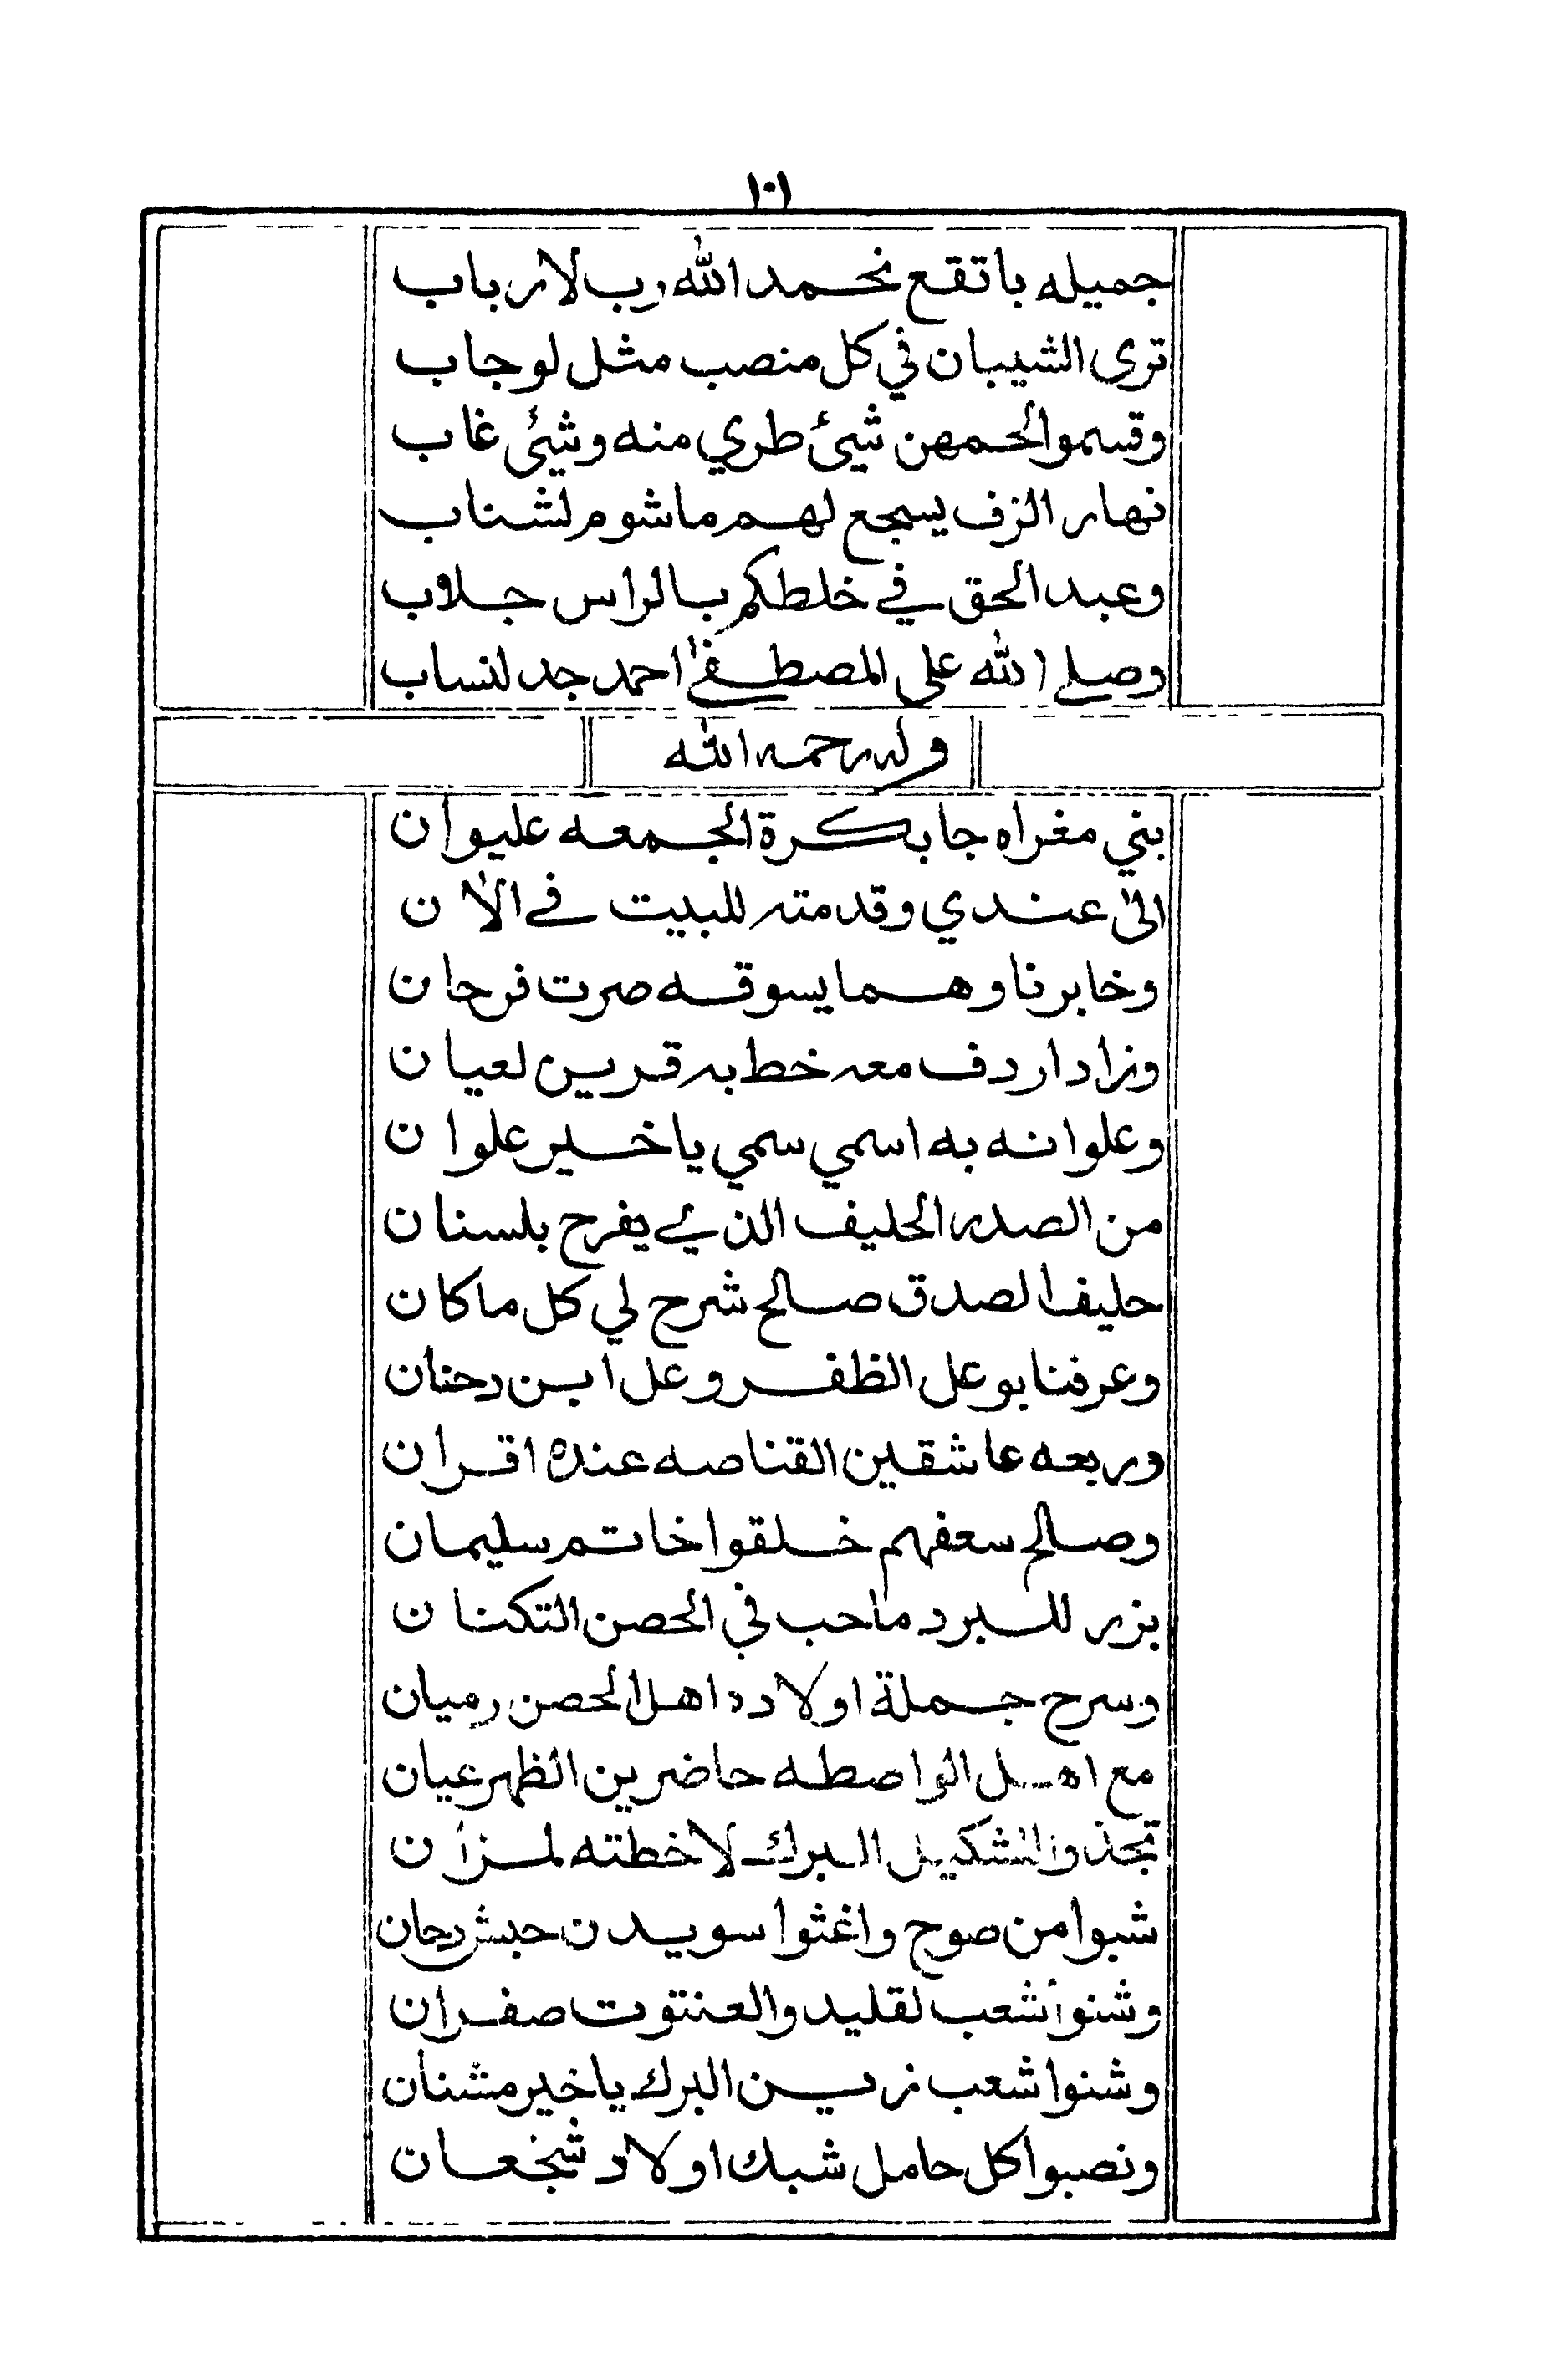 ١٠١
جميله با تقع نحمد الله رب لارباب
ترى الشيبان في كل منصب مثل لوجاب
وقسموا لحمهن شيئ طري منه وشيئ غاب
نهار الزف يسجع لهم ماشوم لشناب
وعبد الحق في خلطكم بالراس جلاب
وصلي الله على المصطفى احمد جد لنساب
وله رحمه الله
بني مغراه جا بكرة الجمعه عليوان
الى عندي وقدمته للبيت في الآن
وخابرنا وهما يسوقه صرت فرحان
وزاد اردف معه خط به قرين لعيان
وعلوانه به اسمي سمي يا خير علوان
من الصدر الحليف الذي يفرح بلسنان
حليف الصدق صالح شرح لي كل ما كان
وعرفنا بوعل الظفر وعل ابن دحنان
وربعه عاشقين القناصه عنده اقران
وصالح سعفهم خلقوا خاتم سليمان
بزر للبرد ماحب في الحصن التكنان
وسرح جملة اولاد اهل الحصن رميان
مع اهل الواصطه حاضرين الظهر عيان
تجذوا لشكيل البرك لاخطته لمزان
شبوا من صوح واغثوا سويدن حبش دحان
وشنوا شعب لقليد والعنتوت صفران
وشنوا شعب زين البرك يا خير مشنان
ونصبوا كل حامل شبك اولاد شجعان